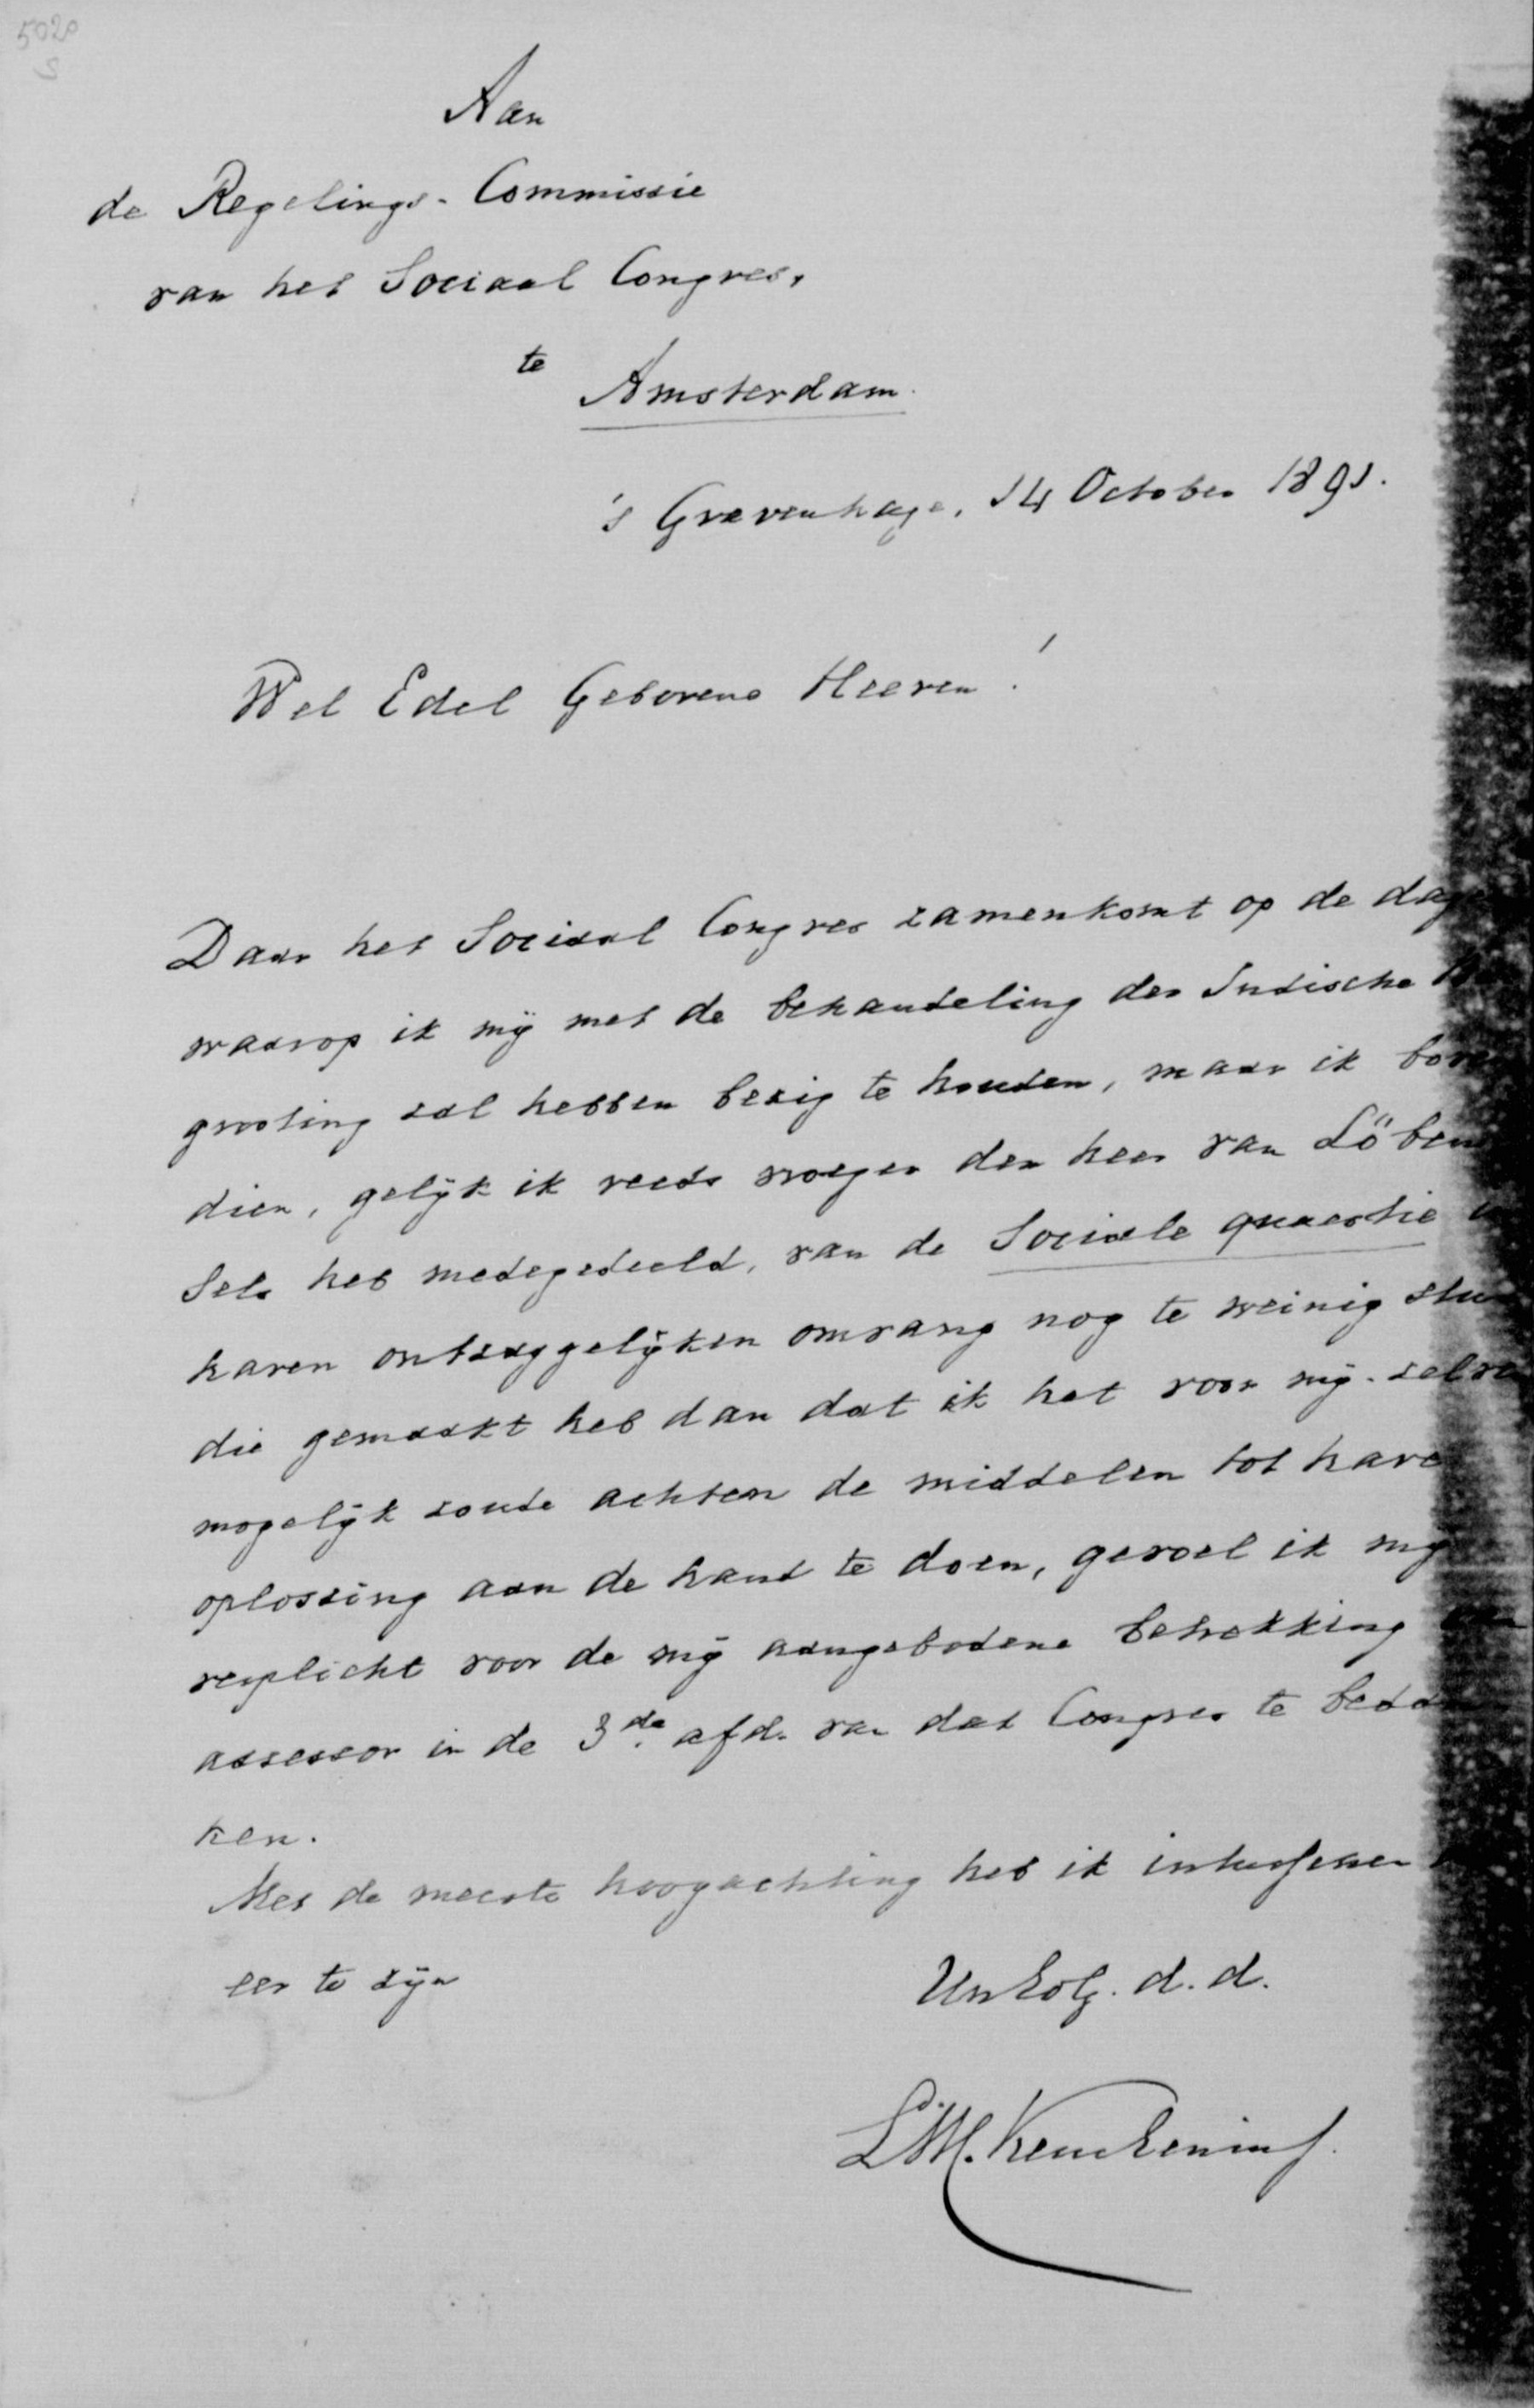 5020
S
Aan
de Regelings-Commissie
van het Sociaal Congres,
te
Amsterdam.
's Gravenhage, 14 October 1891.
Wel Edel Geborene Heeren!
Daar het Sociaal Congres zamenkomt op de dag
waarop ik mij met de behandeling der Indische
grooting zal hebben bezig te houden, maar ik bove
dien, gelijk ik reeds vroeger den heer van Löben
Sels heb medegedeeld, van de Sociale quaestie
haren ontzaggelijken omvang nog te weinig stu
die gemaakt heb dan dat ik het voor mij-zelve
mogelijk zoude achten de middelen tot hare
oplossing aan de hand te doen, gevoel ik mij
verplicht voor de mij aangebodene betrekking
assessor in de 3de afd. van dat Congres te beda
ken.
Met de meeste hoogachting heb ik intusschen
eer te zijn
UwEdG. d. d.
L.W.C. Keuchenius.